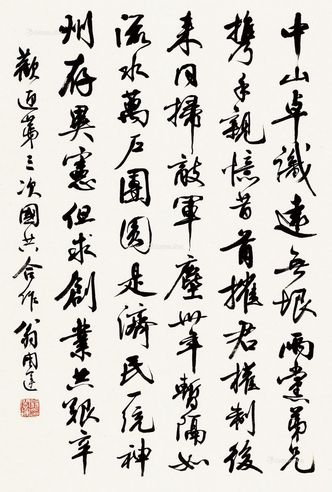 中山卓識遠無垠兩黨弟兄
携手親憶昔首摧君權制後
来同掃敵軍塵卅年暫隔如
水萬户團圓是濟民一统神
州存異憲但求創業共艱辛
歡迎第三次國共合作 翁闓運